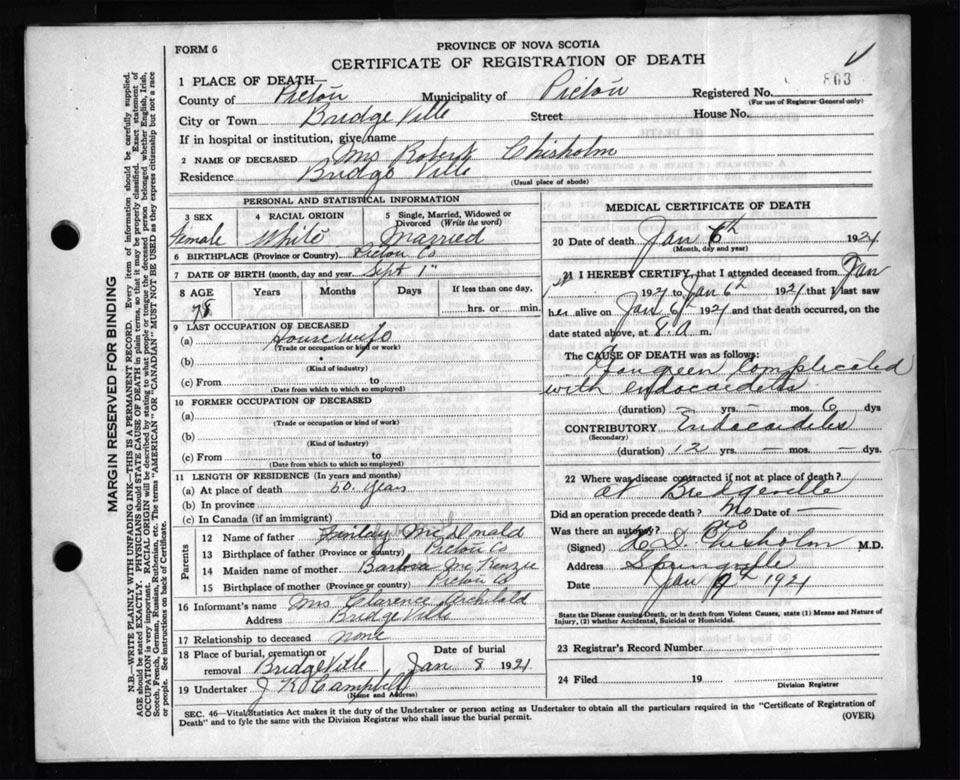 FORM 6
PROVINCE OF NOVA SCOTIA
CERTIFICATE OF REGISTRATION OF DEATH
863
1 PLACE OF DEATH—
County of Pictou Municipality of Pictou Registered No.
(For use of Registrar General only)
City or Town Bridge Ville Street House No.
If in hospital or institution, give name
2 NAME OF DECEASED Mrs Robert Chisholm
Residence Bridge Ville
(Usual place of abode)
PERSONAL AND STATISTICAL INFORMATION
3 SEX 4 RACIAL ORIGIN 5 Single, Married, Widowed or Divorced (Write the word)
Female White Married
6 BIRTHPLACE (Province or Country) Pictou Co
7 DATE OF BIRTH (month, day and year) Sept 1
8 AGE Years Months Days If less than one day,
78 hrs. or min.
9 LAST OCCUPATION OF DECEASED
(a) House wife
(Trade or occupation or kind of work)
(b)
(Kind of industry)
(c) From to
(Date from which to which so employed)
10 FORMER OCCUPATION OF DECEASED
(a)
(Trade or occupation or kind of work)
(b)
(Kind of industry)
(c) From to
(Date from which to which so employed)
11 LENGTH OF RESIDENCE (In years and months)
(a) At place of death 50 years
(b) In province
(c) In Canada (if an immigrant)
Parents
12 Name of father Finlay McDonald
13 Birthplace of father (Province or country) Pictou Co
14 Maiden name of mother Barbara McKenzie
15 Birthplace of mother (Province or country) Pictou Co
16 Informant's name Mrs Clarence Archibald
Address Bridge Ville
17 Relationship to deceased none
18 Place of burial, cremation or removal Bridge Ville Date of burial Jan 8 1921
19 Undertaker J K Campbell
(Name and Address)
MEDICAL CERTIFICATE OF DEATH
20 Date of death Jan 6th 1921
(Month, day and year)
21 I HEREBY CERTIFY, that I attended deceased from Jan
1921 to Jan 6th 1921 that I last saw
her alive on Jan 6th 1921 and that death occurred, on the
date stated above, at 8.A m.
The CAUSE OF DEATH was as follows:
Gangreen Complicated
with endocaditis
(duration) yrs. — mos. 6 dys
CONTRIBUTORY Endocaditis
(Secondary)
(duration) 12 yrs. — mos. — dys.
22 Where was disease contracted if not at place of death?
at Bridgeville
Did an operation precede death? No Date of —
Was there an autopsy? no
(Signed) Chisholm M.D.
Address Springville
Date Jan 9th 1921
State the Disease causing Death, or in death from Violent Causes, state (1) Means and Nature of Injury, (2) whether Accidental, Suicidal or Homicidal.
23 Registrar's Record Number
24 Filed 19
Division Registrar
SEC. 46—Vital Statistics Act makes it the duty of the Undertaker or person acting as Undertaker to obtain all the particulars required in the "Certificate of Registration of
Death" and to fyle the same with the Division Registrar who shall issue the burial permit. (OVER)
MARGIN RESERVED FOR BINDING
N.B.—WRITE PLAINLY WITH UNFADING INK—THIS IS A PERMANENT RECORD. Every item of information should be carefully supplied.
AGE should be stated EXACTLY. PHYSICIANS should STATE CAUSE OF DEATH in plain terms, so that it may be properly classified. Exact statement of
OCCUPATION is very important. RACIAL ORIGIN will be described by stating to what people or tongue the deceased person belonged whether English, Irish,
Scotch, French, German, Russian, Ruthenian, etc. The terms "AMERICAN" OR "CANADIAN" MUST NOT BE USED as they express citizenship but not a race
or people. See instructions on back of Certificate.